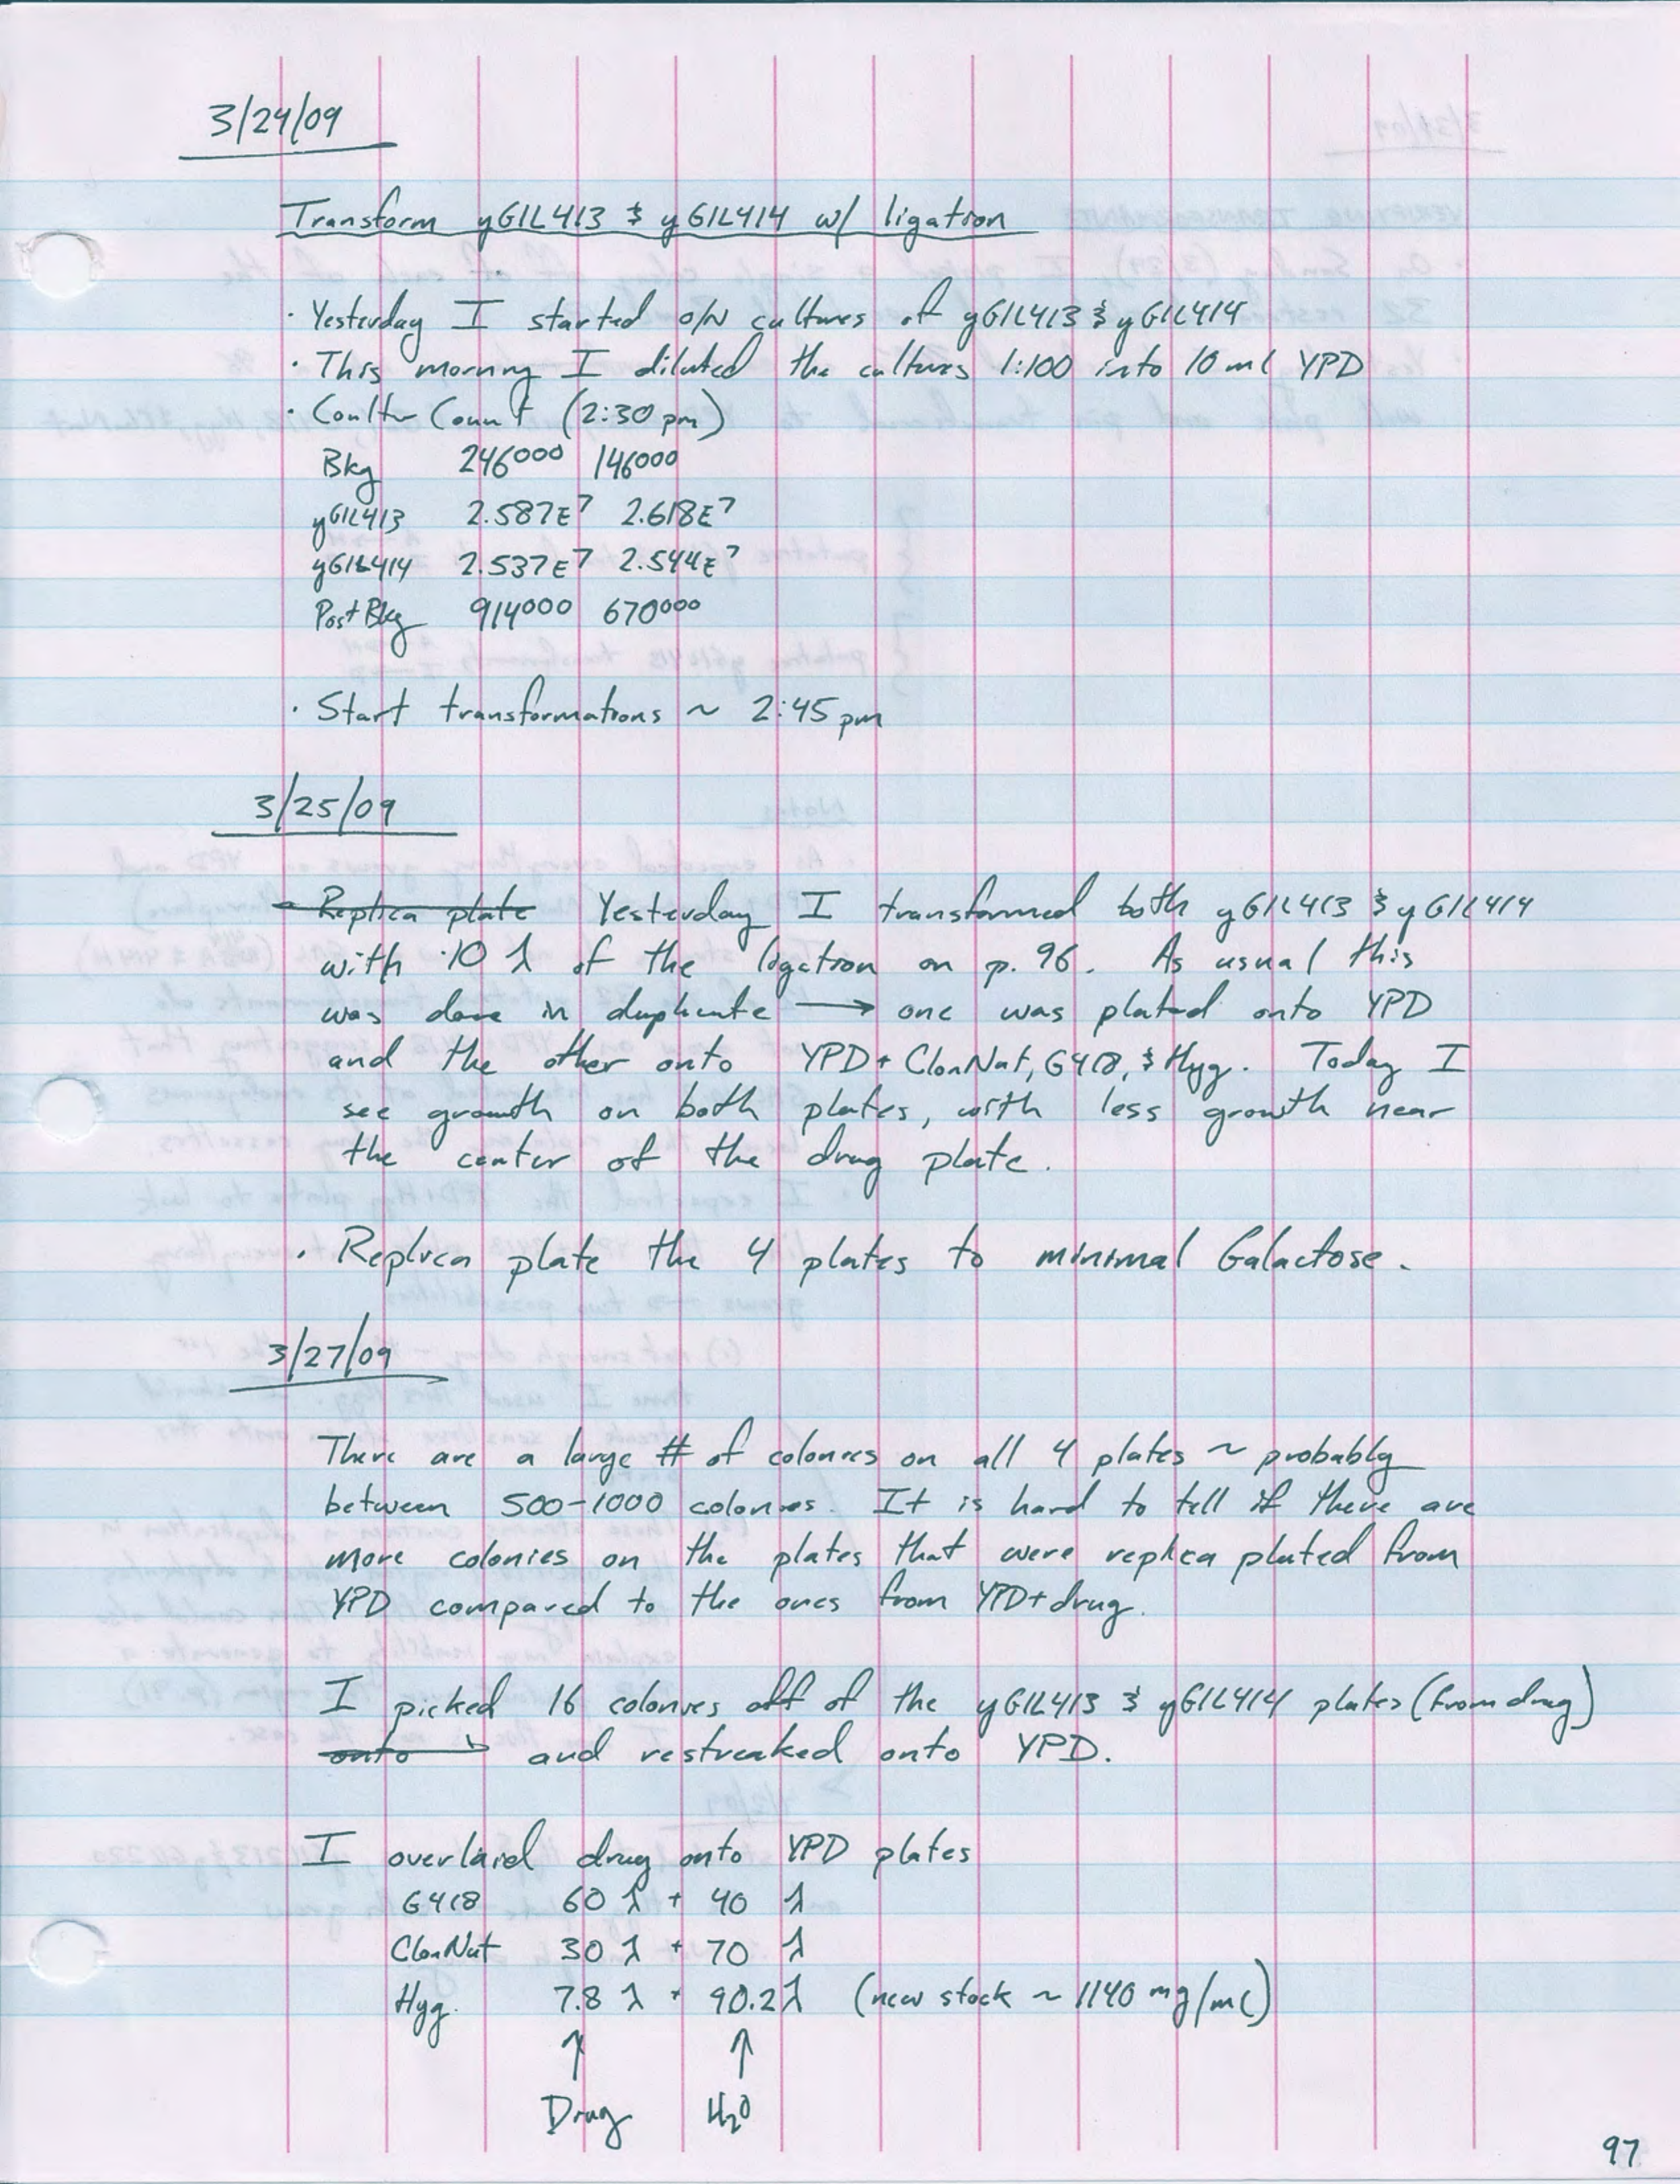 3/24/09
Transform yGIL413 & yGIL414 w/ ligation
· Yesterday I started o/N cultures of yGIL413 & yGIL414
· This morning I diluted the cultures 1:100 into 10 ml YPD
· Coulter Count (2:30 pm)
Bkg 246000 146000
yGIL413 2.587E7 2.618E7
yGIL414 2.537E7 2.544E7
Post Bkg 914000 670000
· Start transformations ~ 2:45 pm
3/25/09
· Replica plate Yesterday I transformed both yGIL413 & yGIL414
with 10 λ of the ligation on p. 96. As usual this
was done in duplicate → one was plated onto YPD
and the other onto YPD + ClonNat, G418, & Hyg. Today I
see growth on both plates, with less growth near
the center of the drug plate.
· Replica plate the 4 plates to minimal Galactose.
3/27/09
There are a large # of colonies on all 4 plates ~ probably
between 500-1000 colonies. It is hard to tell if there are
more colonies on the plates that were replica plated from
YPD compared to the ones from YPD+drug.
I picked 16 colonies off of the yGIL413 & yGIL414 plates (from drug)
onto and restreaked onto YPD.
I overlaid drug onto YPD plates
G418 60 λ + 40 λ
ClonNat 30 λ + 70 λ
Hyg. 7.8 λ + 90.2 λ (new stock ~ 1140 mg/ml)
↑ ↑
Drug H2O
97